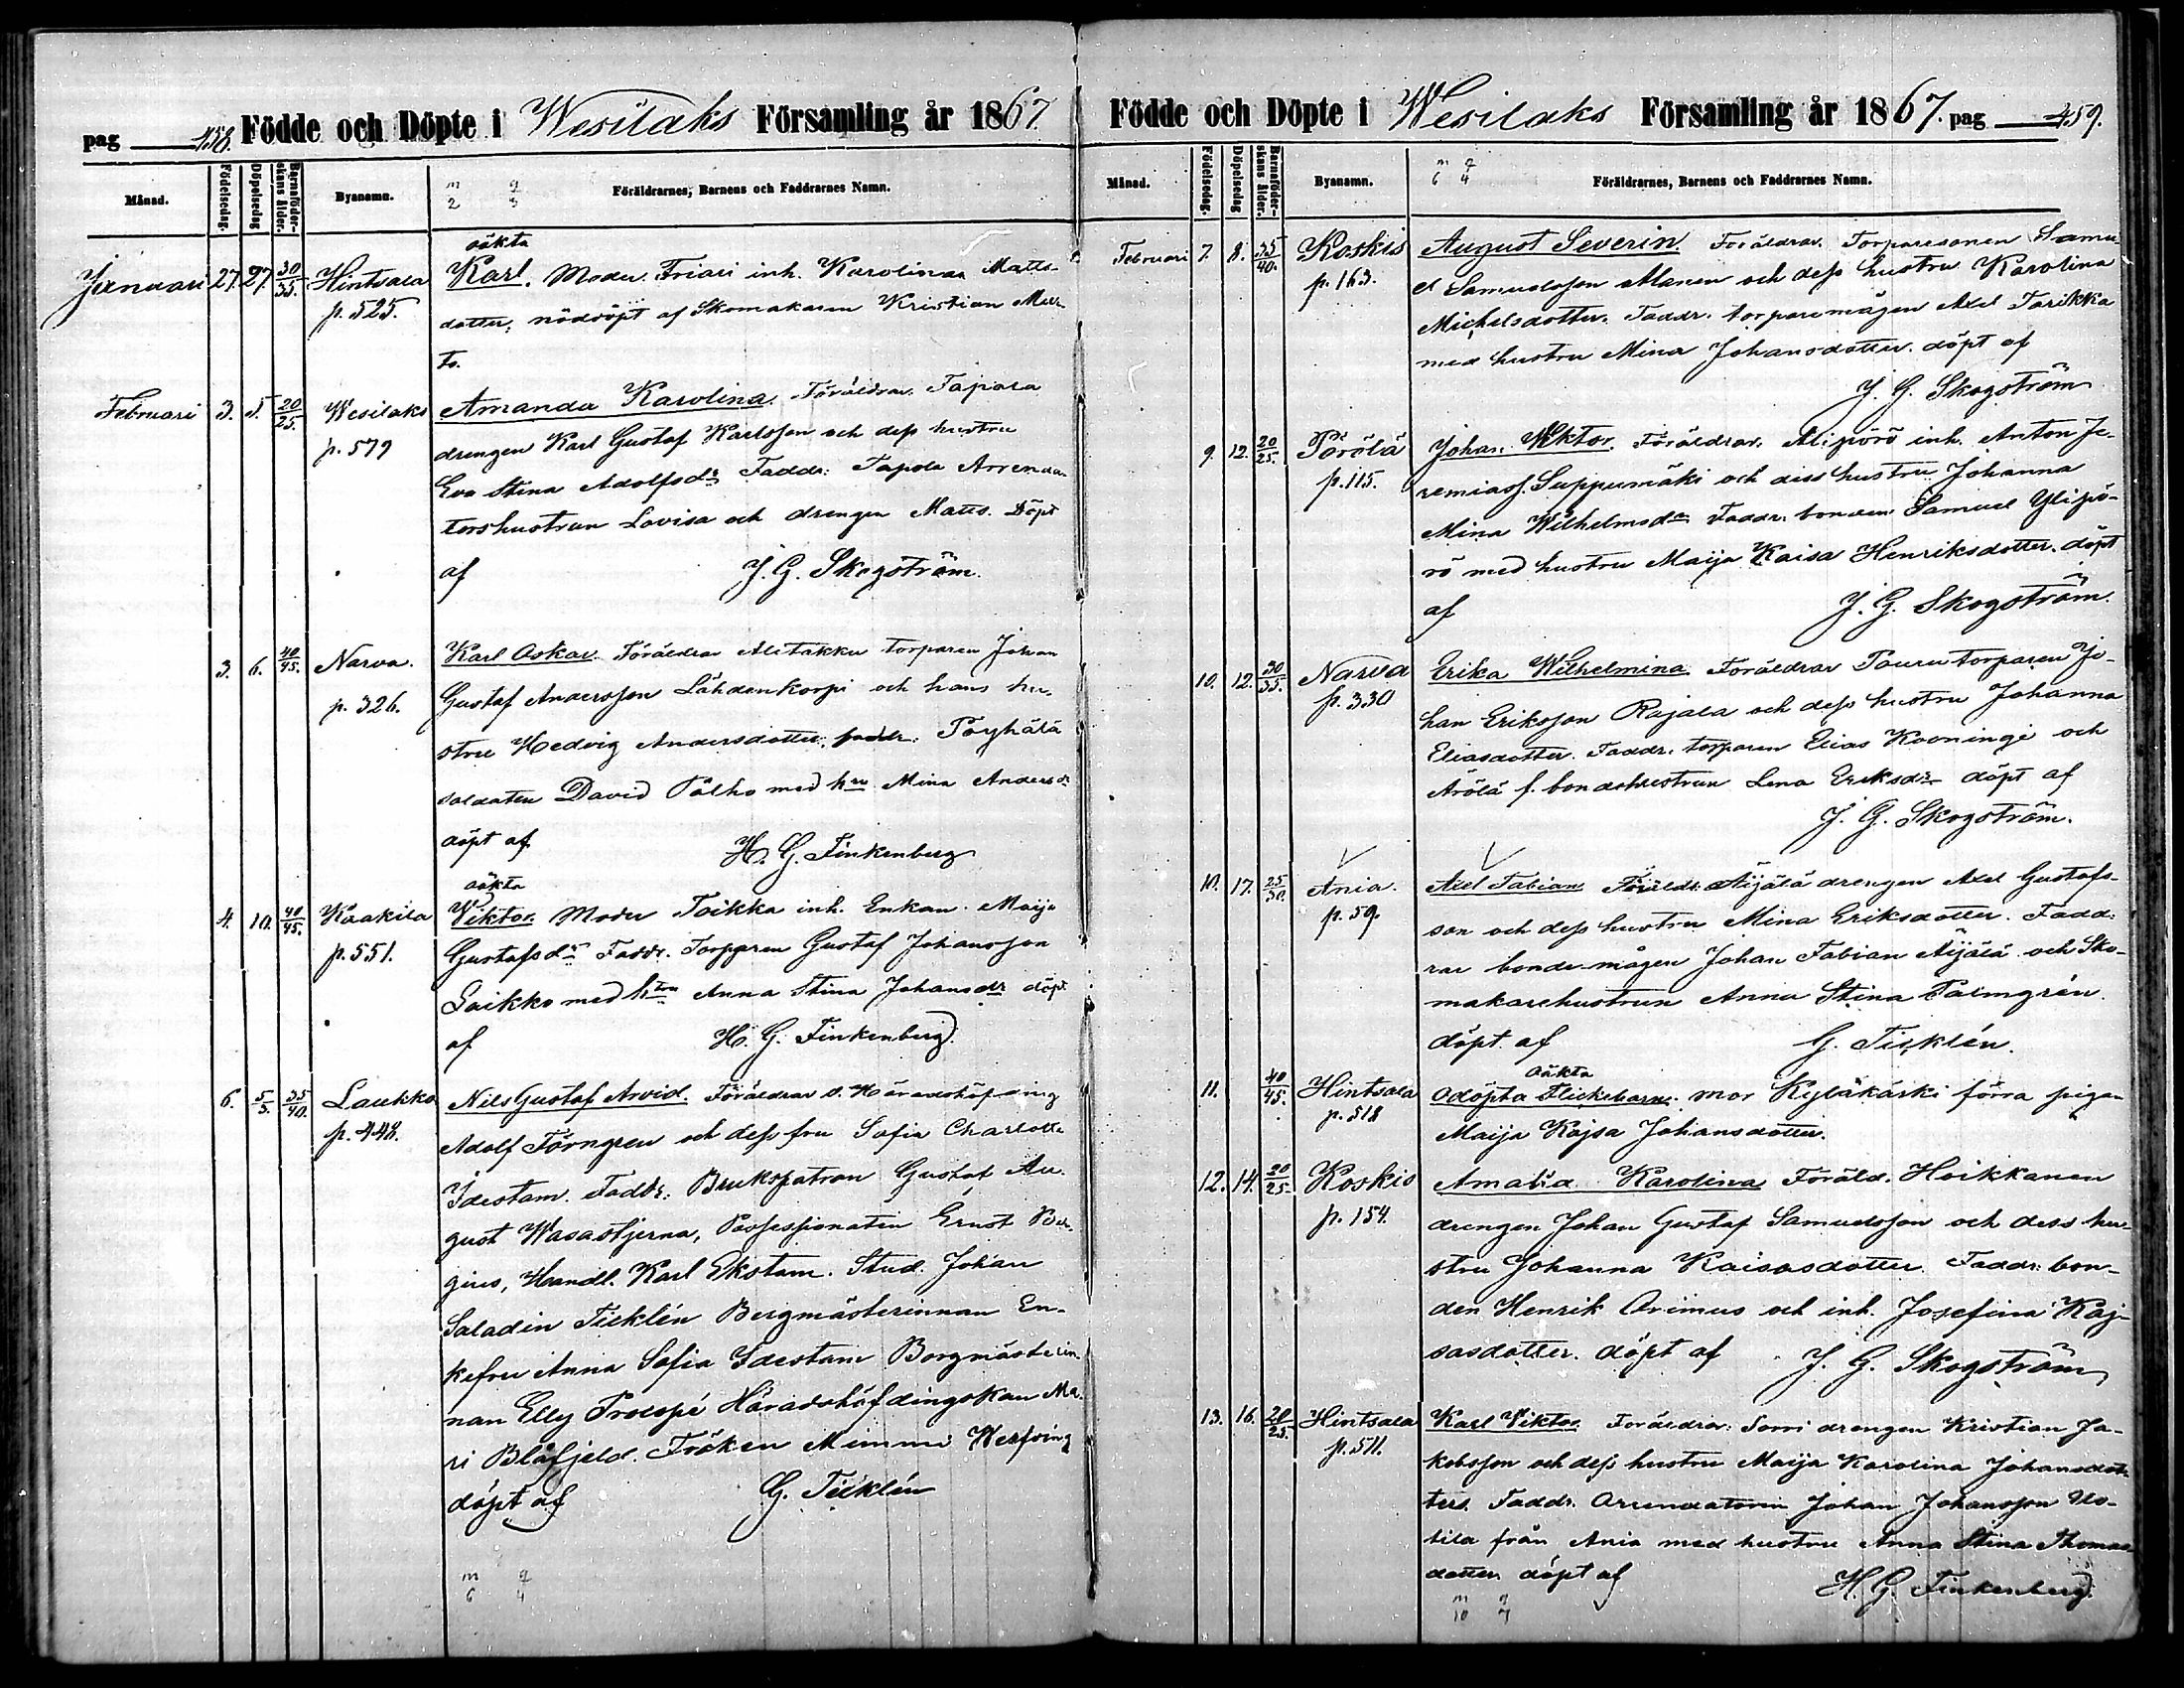 pag 458. Födde och Döpte i Wesilaks Församling år 1867.
Månad. Födelsedag. Döpelsedag Barnaföderskans ålder. Byanamn. Föräldrarnes, Barnens och Faddrarnes Namn.
m q
2 3
oäkta
Januari 27. 27. 30/35. Hintsala Karl. Moder Friari inh. Karolina Matts-
p. 525. dotter, nöddöpt af Skomakaren Kristian
to.
Februari 3. 5. 20/25. Wesilaks Amanda Karolina. Föräldrar Tapola
p. 579 drengen Karl Gustaf Karlsson och dess hustru
Eva Stina Adolfsdr Faddr: Tapola Arrenda-
torshustrun Lovisa och drengen Matts. Döpt
af J. G. Skogström.
3. 6. 40/45. Narva. Karl Oskar. Föräldrar Alitakku torparen Johan
p. 326. Gustaf Andersson Lähdenkorpi och hans hu-
stru Hedvig Andersdotter, faddr. Pöyhälä
soldaten David Pålho med hru Mina Andersdr
döpt af H. G. Finkenberg
oäkta
4. 10. 40/45. Kaakila Viktor. Moder Toikka inh. Enkan Maija
p. 551. Gustafsdr Faddr. Torparen Gustaf Johansson
Laikko med htru Anna Stina Johansdr döpt
af H. G. Finkenberg.
6. 5/3. 35/40. Laukko Nils Gustaf Arvid. Föräldrar v. Häradshöfding
p. 448. Adolf Törngren och dess fru Sofia Charlotta
Idestam. Faddr: Brukspatron Gustaf Au-
gust Wasastjerna, Possessionaten Ernst Ber-
gius, Handl. Karl Ekstam. Stud. Johan
Saladin Ticklén Bergmästerinnan En-
kefru Anna Sofia Idestam Borgmästerin-
nan Elly Procopé Häradshöfdingskan Ma-
ri Blåfjeld. Fröken Mimmi Wesfving
döpt af G. Ticklén
m q
6 4
Födde och Döpte i Wesilaks Församling år 1867. pag 459.
Månad. Födelsedag. Döpelsedag Barnaföderskans ålder. Byanamn. Föräldrarnes, Barnens och Faddrarnes Namn.
m q
6 4
Februari 7. 8. 35/40. Koskis August Severin. Föräldrar. Torparesonen Samu-
p. 163. el Samuelsson Manen och dess hustru Karolina
Michelsdotter. Faddr. torparemågen Axel Tarikka
med hustru Mina Johansdotter. döpt af
J. G. Skogström
9. 12. 20/25. Pörölä Johan Wiktor. Föräldrar. Alipörö inh. Anton Je-
p. 115. remiass. Suppumäki och diss hustru Johanna
Mina Wilhelmsdr Faddr. bonden Samuel Ylipö-
rö med hustru Maija Kaisa Henriksdotter. döpt
af J. G. Skogström.
10. 12. 30/35. Narva Erika Wilhelmina Föräldrar Pouru torparen Jo-
p. 330 han Eriksson Rajala och dess hustru Johanna
Eliasdotter. Faddr. torparen Elias Kooninge och
Ärölä f. bondehustrun Lena Eriksdr döpt af
J. G. Skogström.
10. 17. 25/30. Ania. Axel Fabian Föräldr. Äijälä drengen Axel Gustafs-
p. 59. son och dess hustru Mina Eriksdotter. Fadd:
rar bonde mågen Johan Fabian Äijälä och Sko-
makarehustrun Anna Stina Palmgrén.
döpt af G. Ticklén.
oäkta
11. 40/45. Hintsala Odöpta Flickebarn. mor Kyläkäski förra pigan
p. 518 Maija Kajsa Johansdotter.
12. 14. 20/25. Koskis Amalia Karolina Föräld. Hoikkanen
p. 154. drengen Johan Gustaf Samuelsson och dess hu-
stru Johanna Kaisasdotter. Faddr: bon-
den Henrik Orimus och inh. Josefina Kaj-
sasdotter. döpt af J. G. Skogström
13. 16. 20/25. Hintsala Karl Viktor. Föräldrar. Sorri drengen Kristian Ja-
p. 511. kobsson och dess hustru Maija Karolina Johansdot-
ter. Faddr. Arrendatorn Johan Johansson Us-
tila från Ania med hustru Anna Stina Thomas-
dotter döpt af H. G. Finkenberg.
m q
10 7